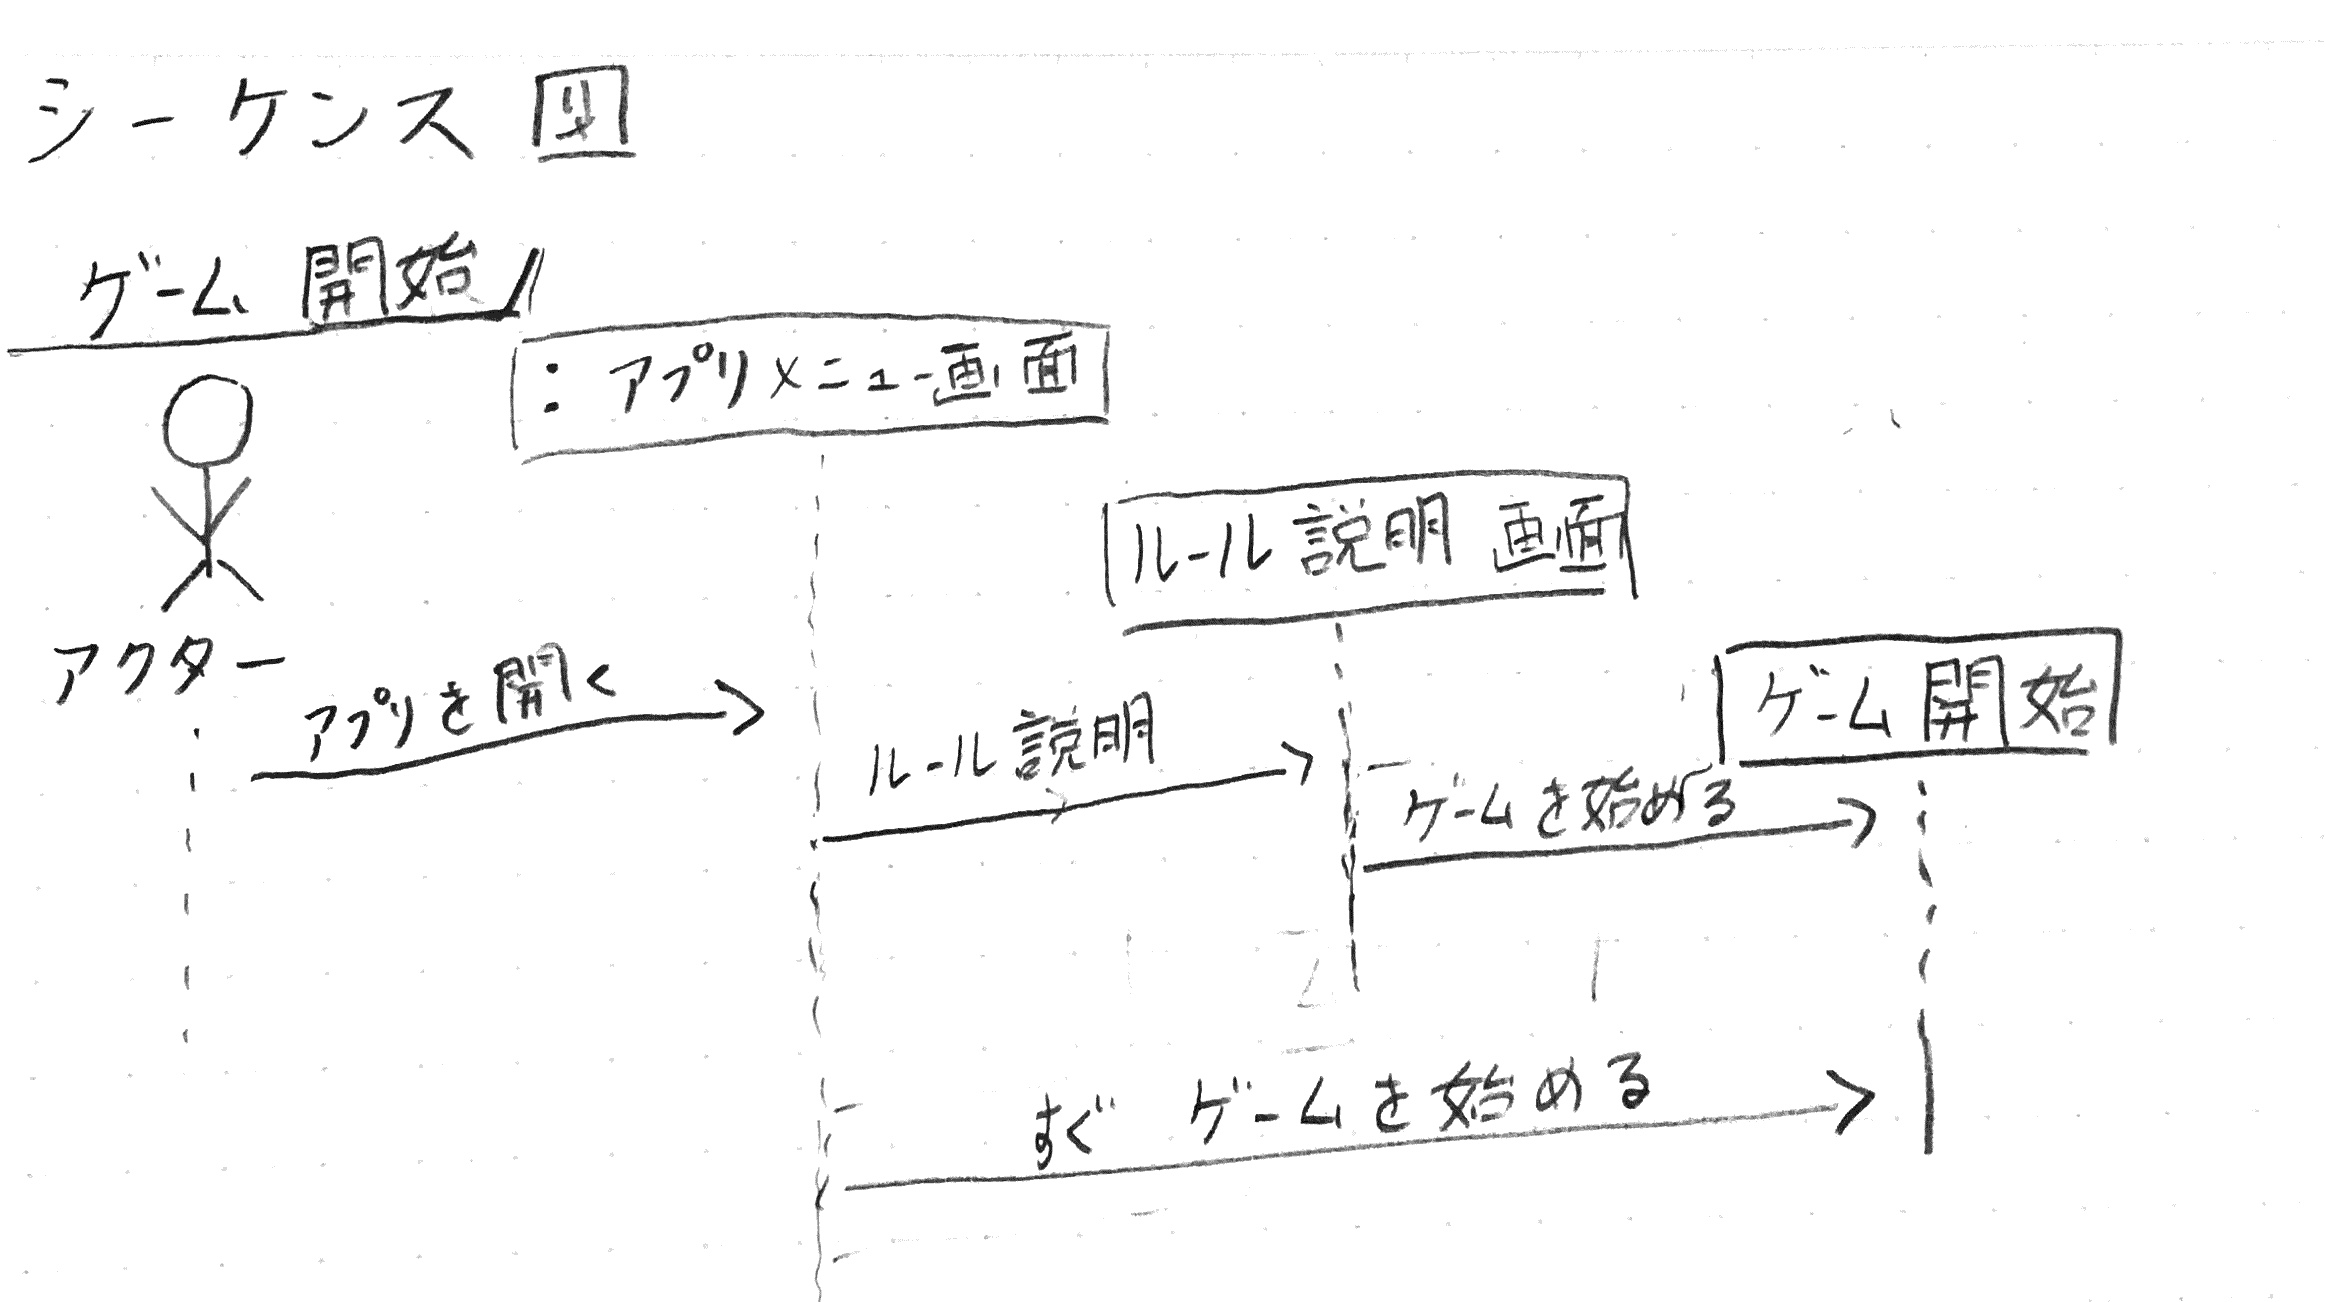 シーケンス図
ゲーム開始
:アプリメニュー画面
ルール説明画面
ゲーム開始
アクター
アプリを開く
ルール説明
ゲームを始める
すぐ ゲームを始める